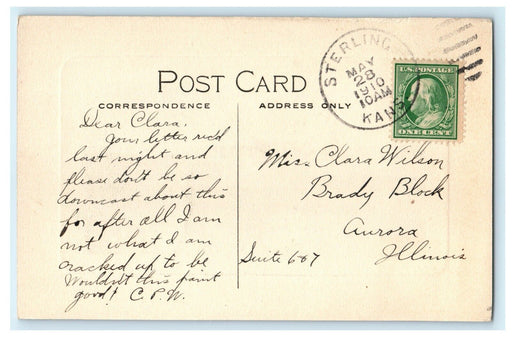 STERLING
MAY
28
1910
10AM
KANS
U.S. POSTAGE
ONE CENT
POST CARD
CORRESPONDENCE
ADDRESS ONLY
Dear Clara,
Your letter rec'd
last night and
please don't be so
downcast about this
for after all I am
not what I am
cracked up to be
Wouldn't this paint
good! C.P.W.
Miss Clara Wilson
Brady Block
Aurora
Illinois
Suite 6-07